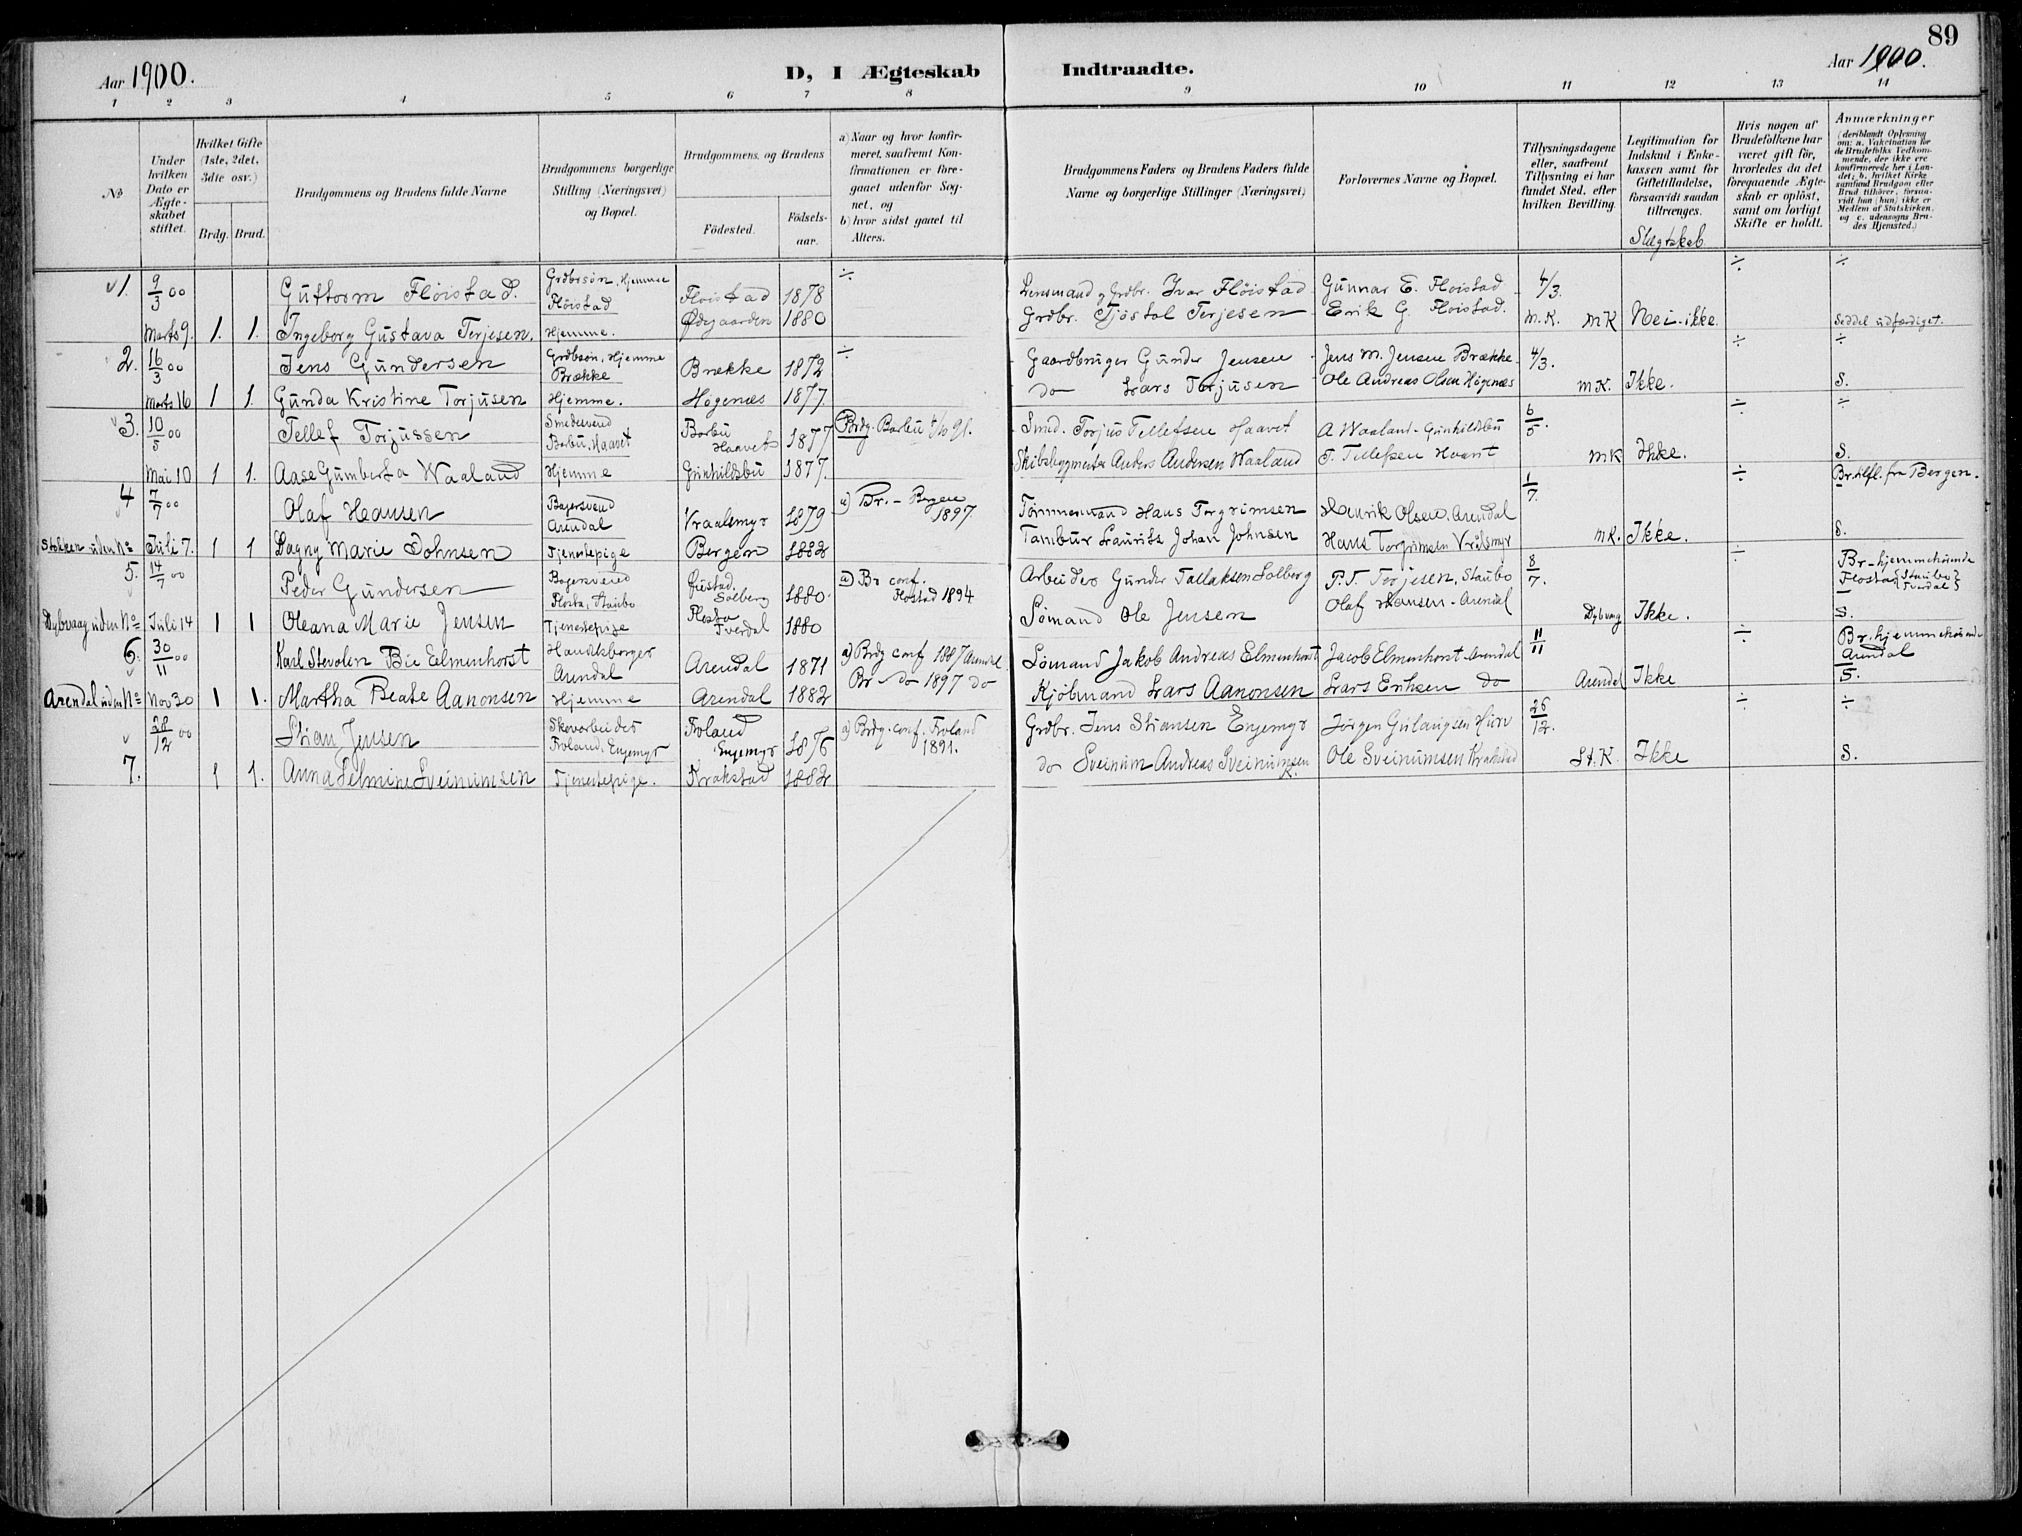 89
Aar 1900.
D, I Ægteskab Indtraadte.
Aar 1900.
1 2 3 4 5 6 7 8 9 10 11 12 13 14
No
Under hvilken Dato er Ægteskabet stiftet.
Hvilket Gifte (1ste, 2det, 3dte osv.)
Brdg. Brud.
Brudgommens og Brudens fulde Navne
Brudgommens borgerlige Stilling (Næringsvei) og Bopæl.
Brudgommens og Brudens
Födested.
Födselsaar.
a) Naar og hvor konfirmeret, saafremt Konfirmationen er foregaaet udenfor Sognet, og
b) hvor sidst gaaet til Alters.
Brudgommens Faders og Brudens Faders fulde Navne og borgerlige Stillinger (Næringsvei)
Forlovernes Navne og Bopæl.
Tillysningsdagene eller, saafremt Tillysning ei har fundet Sted, efter hvilken Bevilling.
Legitimation for Indskud i Enkekassen samt for Giftetilladelse, forsaavidt saadan tiltrænges.
Slægtskab
Hvis nogen af Brudefolkene har været gift för, hvorledes da det foregaaende Ægteskab er oplöst, samt om lovligt Skifte er holdt.
Anmærkninger
(deriblandt Oplysning om: a. Vakcination for de Brudefolks Vedkommende, der ikke ere konfirmerede her i Landet; b. hvilket Kirkesamfund Brudgom eller Brud tilhörer, forsaavidt han (hun) ikke er Medlem af Statskirken, og c. udensogns Brudes Hjemsted.)
1. 9/3 00 Guttorm Fløistad. Grdbrsøn, Hjemme Fløistad Fløistad 1878 ÷ Lensmand og Grdbr. Ivar Fløistad Gunnar E. Fløistad 4/3. ÷ ÷
Marts 9. 1. 1. Ingeborg Gustava Terjesen. Hjemme. Ødegaarden 1880 Grdbr. Tjøstol Terjesen Erik G. Fløistad. M.K. MK Nei-ikke. Seddel udfærdiget.
2. 16/3 00 Jens Gundersen Grdbsøn, Hjemme Brække Brække 1872 ÷ Gaardbruger Gunder Jensen Jens M. Jensen Brække 4/3. ÷ ÷
Marts 16 1 1. Gunda Kristine Torjusen Hjemme. Høgenæs 1877 do Lars Torjusen Ole Andreas Olsen Høgenæs MK. Ikke. S.
3. 10/5 00 Tellef Torjussen Smedesvend Barbu, Haavet Barbu Haavet 1877 Brdg. Barbu 4/10 91. Smed. Torjus Tellefsen Haavet A Waaland - Gunhildsbu 6/5. ÷ ÷
Mai 10 1 1. Aase Gumberta Waaland Hjemme Gunhildsbu 1877. Skibsbygmester Anders Andersen Waaland T. Tellefsen Haavet MK Ikke. S.
4 7/7 00 Olaf Hansen Bagersvend Arendal Vraalsmyr 1879 a) Br. - Bergen 1897. Tømmermand Hans Torgrimsen Henrik Olsen. Arendal 1/7. ÷ Br. tilfl. fra Bergen.
Stokken uden No Juli 7. 1 1 Dagny Marie Johnsen Tjenestepige Bergen 1882 Tambur Laurits Johan Johnsen Hans Torgrimsen Vraalsmyr MK. Ikke. S.
5. 14/7 00 Peder Gundersen Bagersvend Flosta, Staubo Øiestad. Solberg 1880. a) Br conf. Flostad 1894 Arbeider Gunder Tallaksen Solberg P. T. Terjesen, Staubo 8/7. ÷ Br-hjemmehørende Flosta {Staubo Tverdal}
Dybvaag uden No Juli 14 1 1 Oleana Marie Jensen Tjenestepige Flosta Tverdal 1880 Sømand Ole Jensen Olaf Hansen - Arendal Dybvaag Ikke. S.
6. 30/11 00 Karl Stevolen Bie Eelmenhorst Arendal Arendal 1871 a) Brdg conf 1887 Arendal Sømand Jakob Andreas Elmenhorst Jacob Elmenhorst - Arendal 11/11 ÷ Br. hjemmehørende Arendal
Arendal uden No Nov 30 1 1. Martha Beate Aanonsen Hjemme Arendal 1882 Br do 1897 do Kjøbmand Lars Aanonsen Lars Eriksen do Arendal Ikke S.
28/12 00 Stian Jensen Skovarbeider Froland, Engemyr Froland Engemyr 1876 a) Brdg. conf. Froland 1891. Grdbr. Jens Stiansen Engemyr Jørgen 26/12. ÷ ÷
7. 1 1. Anna Selmine Sveinumsen Tjenestepige. Krakstad 1882 do Sveinum Andreas Sveinumsen K. Ole Sveinumsen Krakstad St.K. Ikke S.